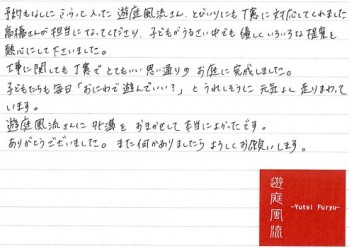 予約もなしにふらっと入った遊庭風流さん、とびいりにも丁寧に対応してくれました
高橋さんが担当になってくださり、子どもがうるさい中でも優しくいろいろな提案を
熱心にして下さいました。
工事に関しても丁寧でとてもいい思い通りのお庭に完成しました。
子どもたちも毎日「おにわで遊んでいい?」とうれしそうに元気よく走りまわって
います。
遊庭風流さんに外溝をおまかせして本当によかったです。
ありがとうございました。また何かありましたらよろしくお願いします。
遊庭風流
-Yutei Furyu-